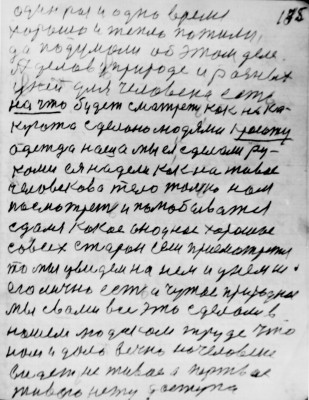 175
один раз и одно время
хорошо и тепло пожили,
да подумали об этом деле.
А делов у природе и разных
идей для человека есть
на что будет сматреть как на ка
кую то сделоно людями красоту
одежда наша мы я сделали ру-
ками ея надели как на живое
человекова тело только нам
посмотреть и полюбаватся
сдаля какое оно дное хорошое
со всех старон если присмотрется
то мы увидем на нем и у нем и
его лично есть и чужое природное
мы с вами все это сделали в
нашем людском труде что
нам и дало вечно на человеке
видеть не живае а мертвое
живого нету доступа